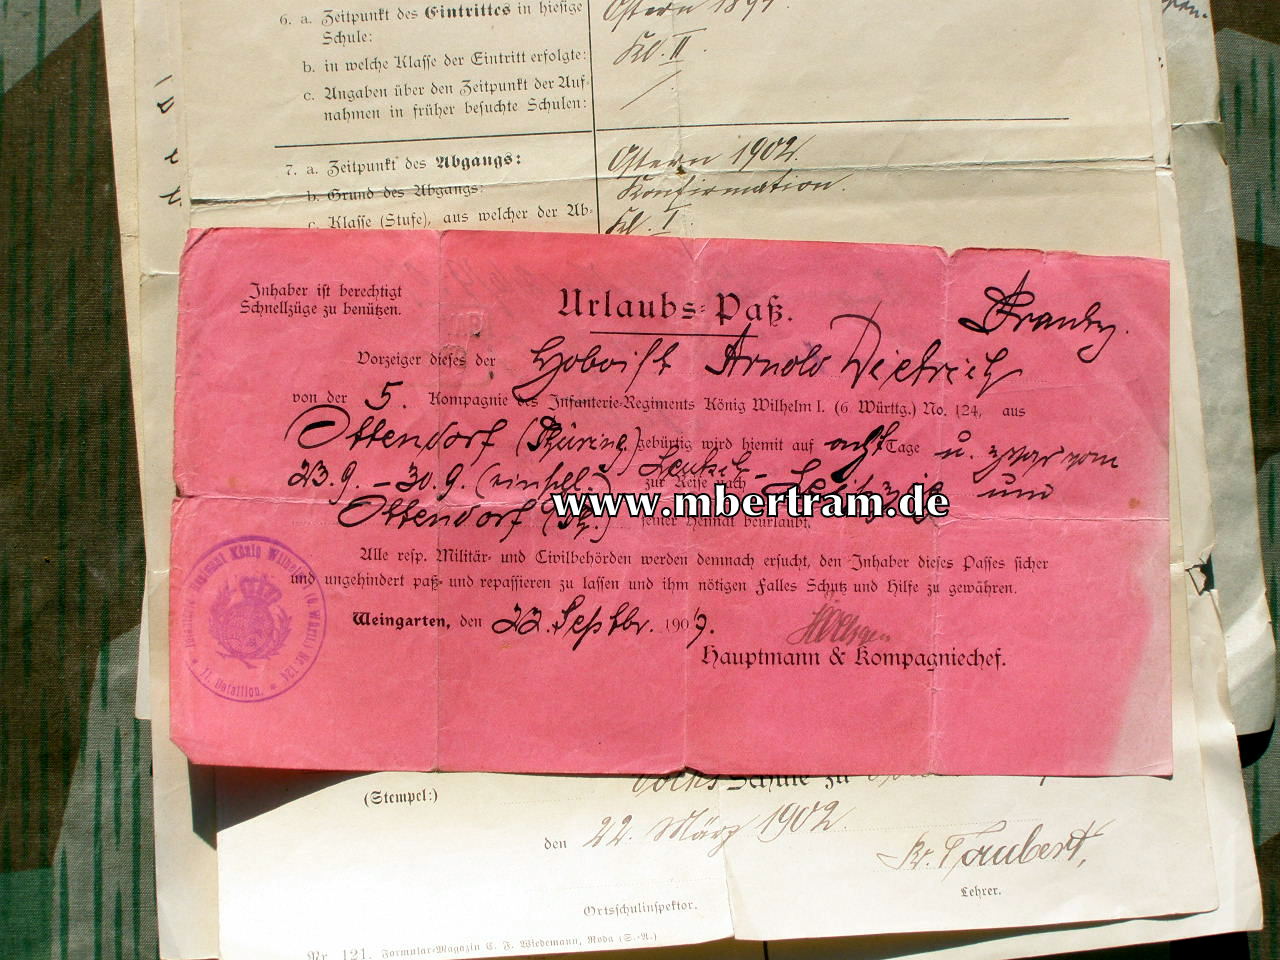 6. a. Zeitpunkt des Eintrittes in hiesige
Schule:
Ostern
b. in welche Klasse der Eintritt erfolgte:
Kl. II.
c. Angaben über den Zeitpunkt der Auf-
nahmen in früher besuchte Schulen:
7. a. Zeitpunkt des Abgangs:
Ostern 1902.
b. Grund des Abgangs:
Konfirmation.
c. Klasse (Stufe), aus welcher der Ab-
Kl. I
Inhaber ist berechtigt
Schnellzüge zu benützen.
Urlaubs-Paß.
Vorzeiger dieses der Hoboist Arnold Dietrich
von der 5. Kompagnie des Infanterie-Regiments König Wilhelm I. (6 Württg.) No. 124, aus
Ottendorf (Thüring.) gebürtig wird hiemit auf acht Tage u. zwar vom
23.9. - 30.9. (einschl.) zur Reise nach Leutzsch - Leipzig und
Ottendorf (Th.) seiner Heimat beurlaubt.
www.mbertram.de
Alle resp. Militär- und Civilbehörden werden demnach ersucht, den Inhaber dieses Passes sicher
und ungehindert paß- und repassieren zu lassen und ihm nötigen Falles Schutz und Hilfe zu gewähren.
Weingarten, den 22. Septbr. 1907.
Hauptmann & Kompagniechef.
Infanterie Regiment König Wilhelm I (6 Württ) Nr 124
II. Bataillon.
(Stempel:)
Volks Schule zu
den 22. März 1902.
Taubert,
Lehrer.
Ortsschulinspektor.
Nr. 121. Formular-Magazin C. F. Wiedemann, Roda (S.-A.)